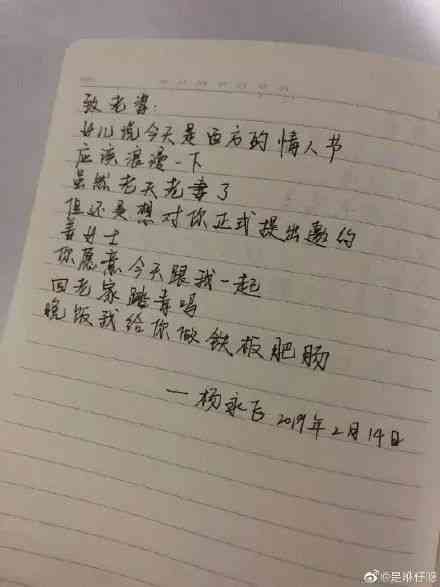 致老婆：
女儿说今天是西方的情人节
应该浪漫一下
虽然老夫老妻了
但还是想对你正式提出邀约
姜女士
你愿意今天跟我一起
回老家踏青吗
晚饭我给你做铁板肥肠
—杨永飞 2019年2月14日
@是唯仔呀